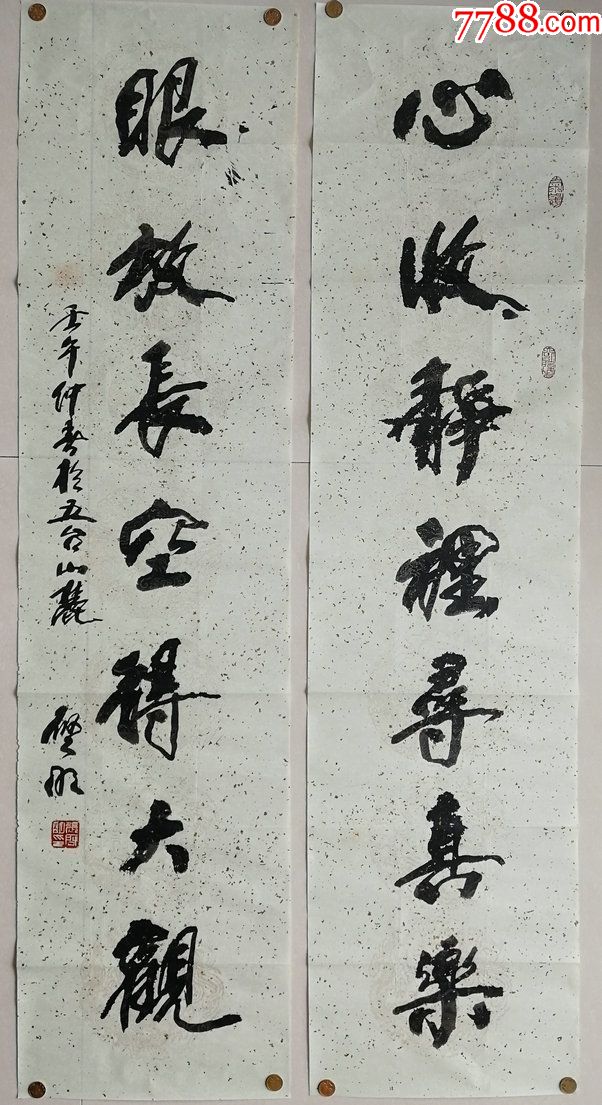 7788.com
心收静裡尋真樂
眼放長空得大觀
壬午仲春於五台山麓
啓明